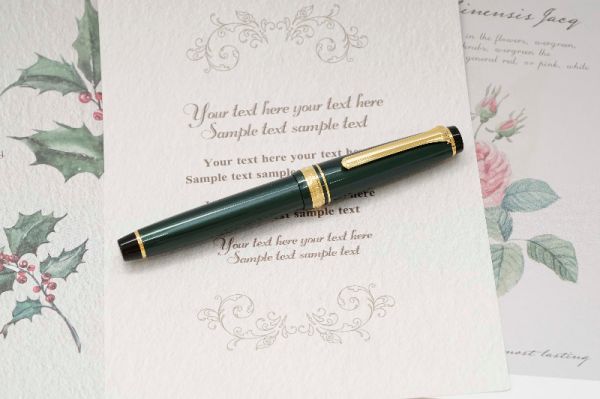 Your text here your text here
Sample text sample text
Your text here your text
Sample text sample text
sample text
Your text here your text here
Sample text sample text
inensis Jacq
in the flowers, wergreen,
wergreen the
general red, or pink, while
most lasting